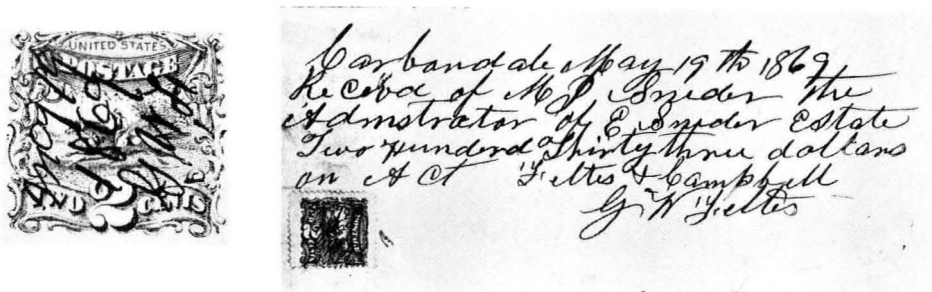 UNITED STATES
POSTAGE
TWO 2 CENTS
Carbondale May 19th 1869
Received of M D Snider the
Admstrator of E, Snider Estate
Two Hunderd Thirty three dollars
on Act Feltes & Campbell
G W Feltes